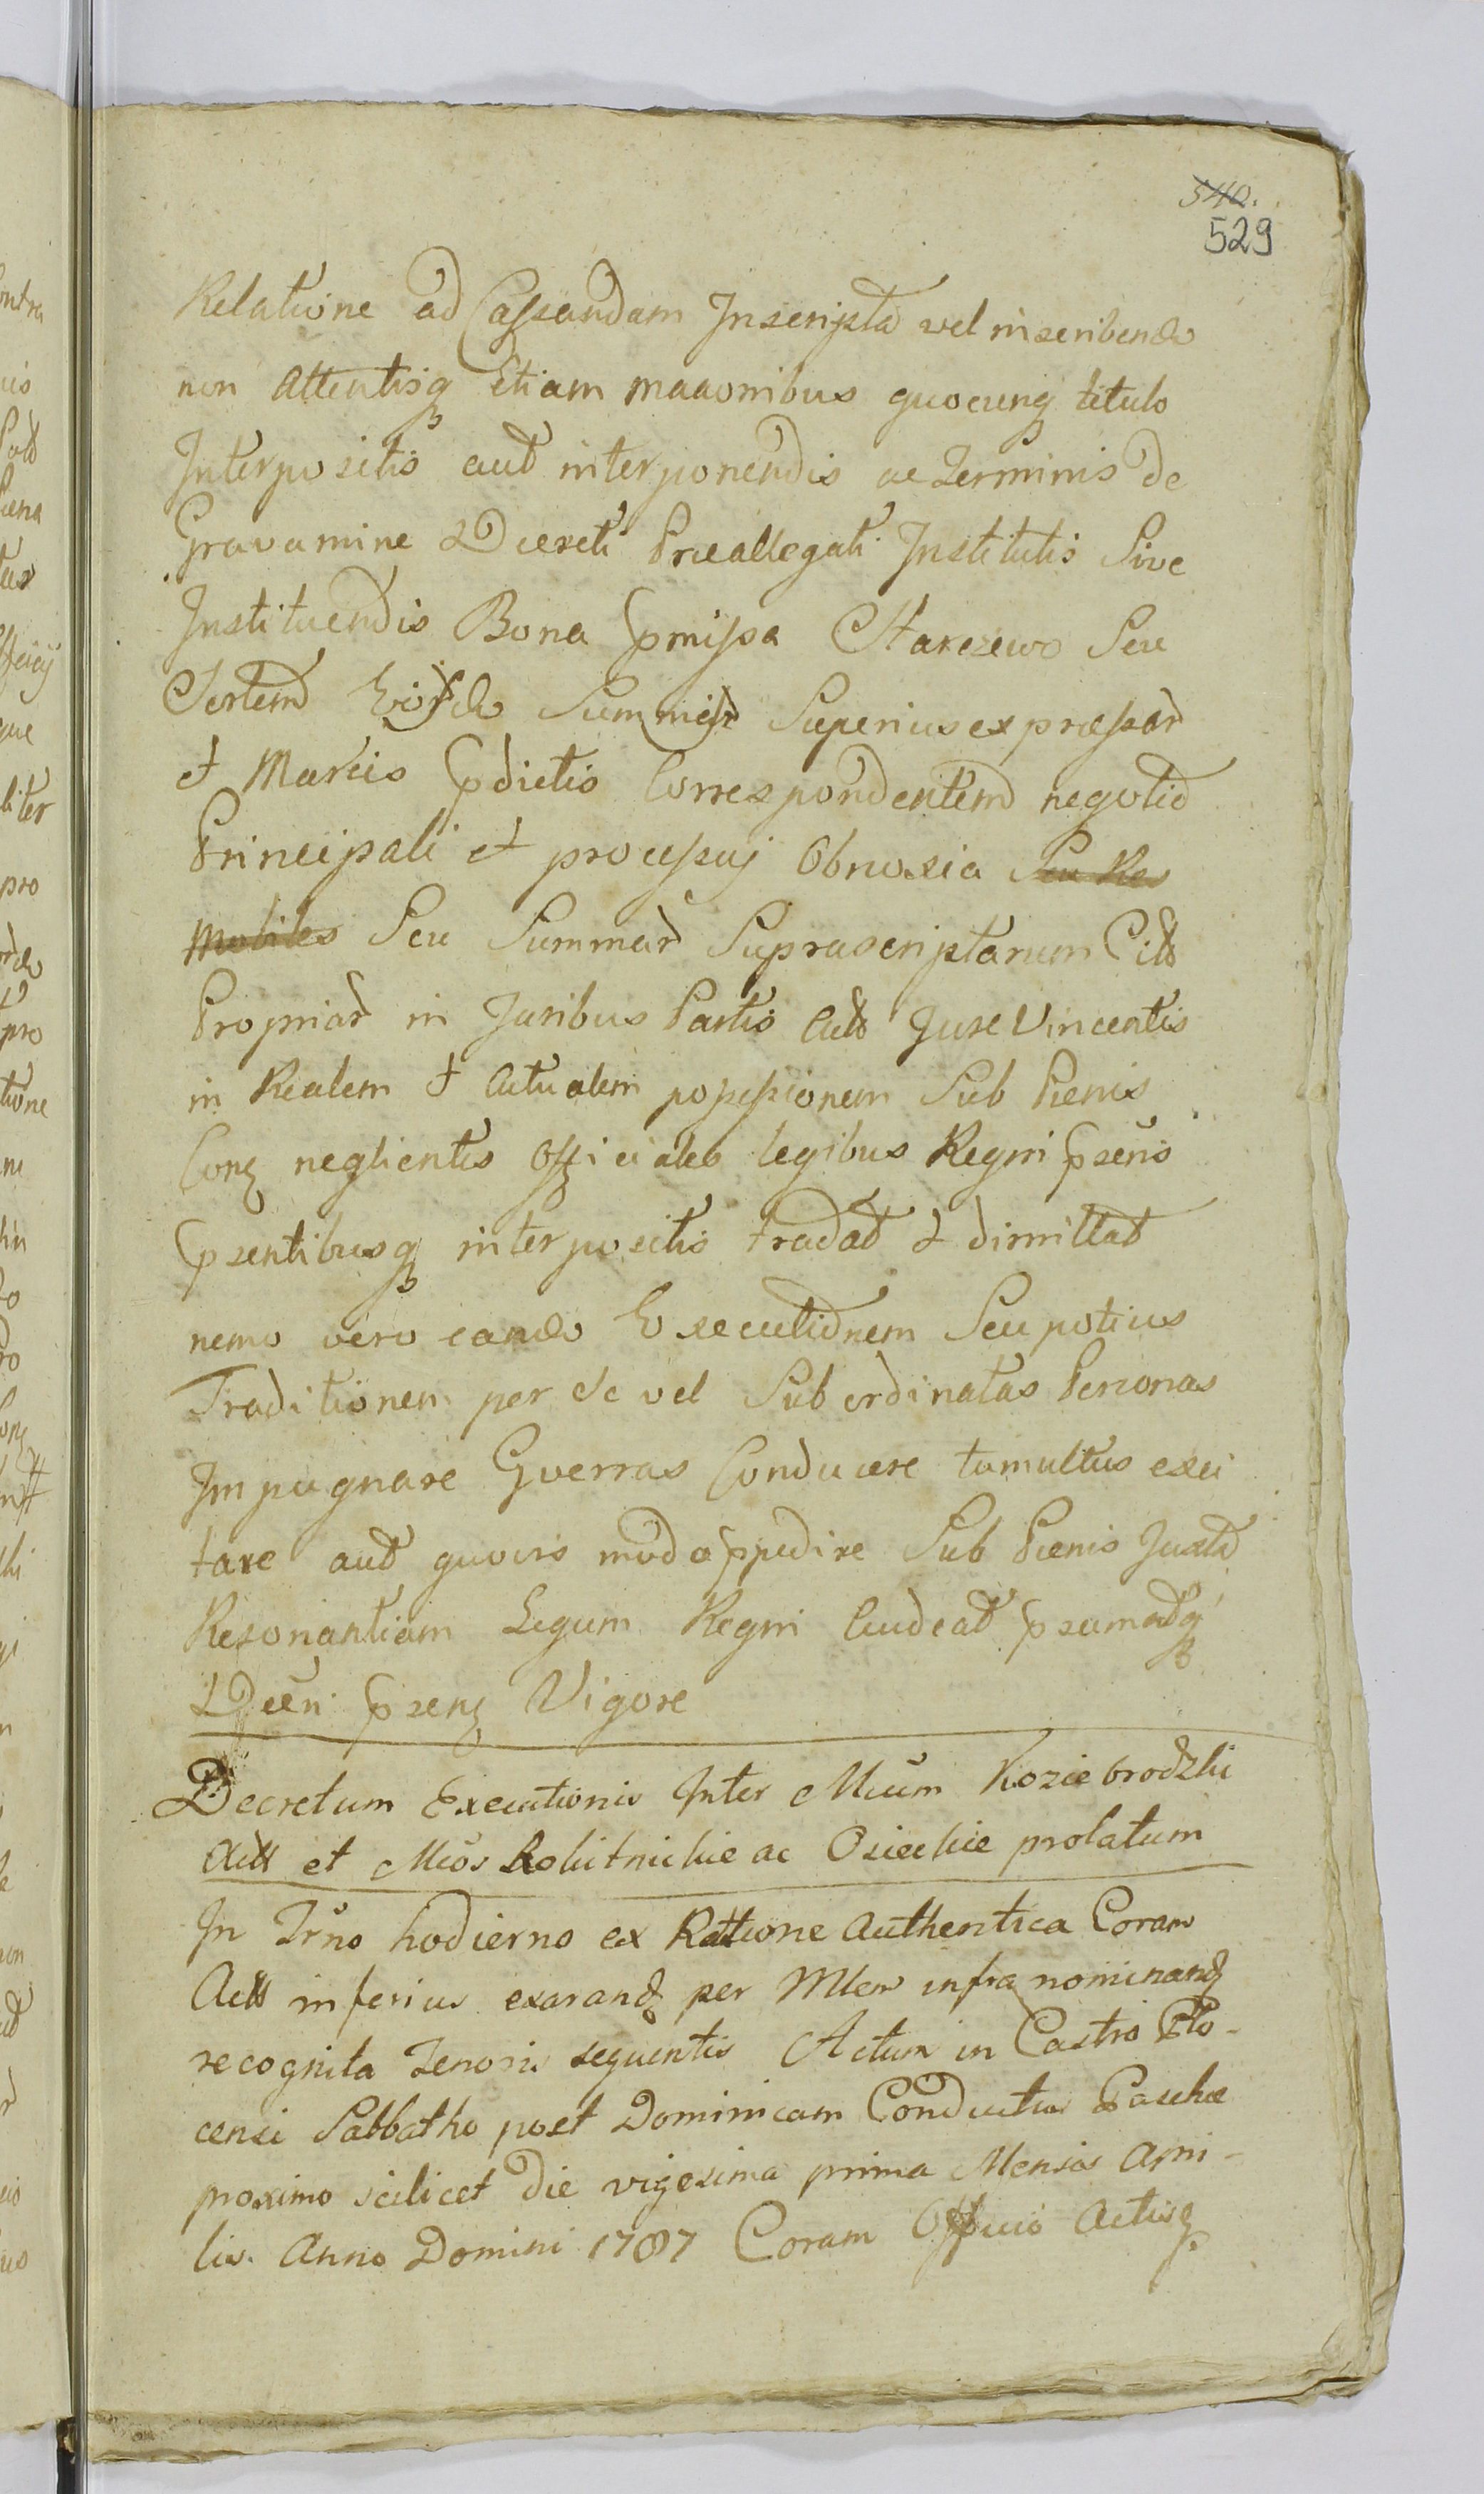 540.
529
Relatione ad Cassandam Inscripta vel inscribenda
non attentisq etiam motionibus quocunq titulo
Interpositis aut interponendis ac Terminis de
Gravamine Decreti Praeallegati Institutis Sive
Instituendis Bona pmissa Starczewo Seu
Sortem Summis Superius expressar
et Marcis pdictis Correspondentem negotio
Principali et processuj Obnoxia Seu Res
Mobiles Seu Summar Suprascriptarum Citt
Propriar in Juribus Partis Actt Jure Vincentis
in Realem et Actualem possessionem Sub Poenis
Conq neglientes Officiales legibus Regni psens
psentibusq interpositis tradat & dimittat
nemo vero eande Executionem Seu potius
Traditionem per Se vel Subordinatas Personas
Impugnare Guerras Conducere tumultus exci
tare aut quovis modo ppedire Sub Poenis Juxta
Resonantiam Legum Regni Audeat psumatq
Decn psenq Vigore
Decretum Executionis Inter Mcum Koziebrodzki
Actt et Mcos Rokitnickie ac Osieckie prolatum
In Trno hodierno ex Rattione Authentica Coram
Actt inferius exarand per Mlem infra nominand
recognita Tenoris sequentis Actum in Castro Plo-
censi Sabbatho post Dominicam Conductus Paschae
proximo scilicet Die vigesima prima Mensis Apri-
lis. Anno Domini 1787 Coram Officio Actisq